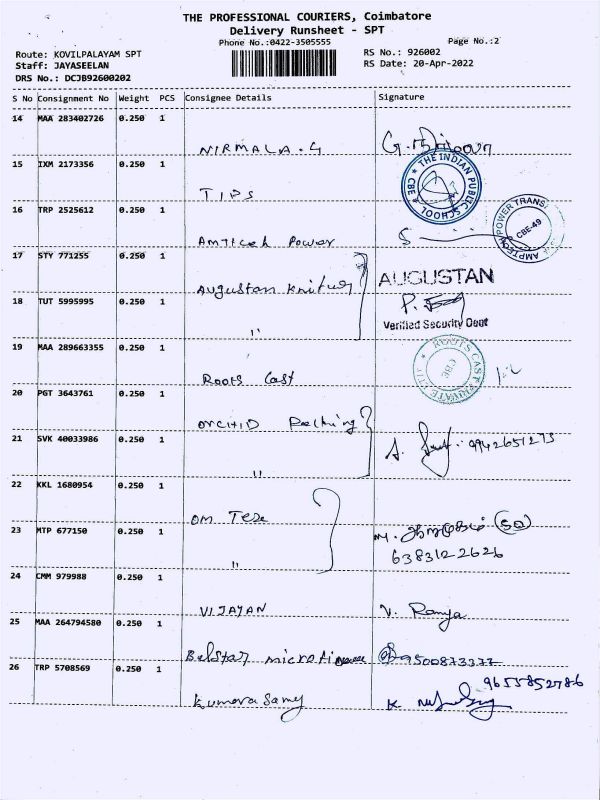 THE PROFESSIONAL COURIERS, Coimbatore
Delivery Runsheet - SPT
Phone No.:0422-3505555
Page No.:2
Route: KOVILPALAYAM SPT
Staff: JAYASEELAN
DRS No.: DCJB92600202
RS No.: 926002
RS Date: 20-Apr-2022
S No Consignment No Weight PCS Consignee Details Signature
14 MAA 283402726 0.250 1
NIRMALA. G
15 IXM 2173356 0.250 1
TIPS
THE INDIAN PUBLIC SCHOOL CBE
16 TRP 2525612 0.250 1
Amtech Power
CBE-49
17 STY 771255 0.250 1
Augustan
AUGUSTAN
18 TUT 5995995 0.250 1
"
Verified Security Dept
19 MAA 289663355 0.250 1
Roots Cast
ROOTS CAST PRIVATE LTD CBE
20 PGT 3643761 0.250 1
ORCHID
21 SVK 40033986 0.250 1
"
9942651273
22 KKL 1680954 0.250 1
OM Tex
23 MTP 677150 0.250 1
"
6383122626
24 CMM 979988 0.250 1
VIJAYAN
V. Ramya
25 MAA 264794580 0.250 1
Belstar micro
9500873377
26 TRP 5708569 0.250 1
Kumara Samy
9655852786